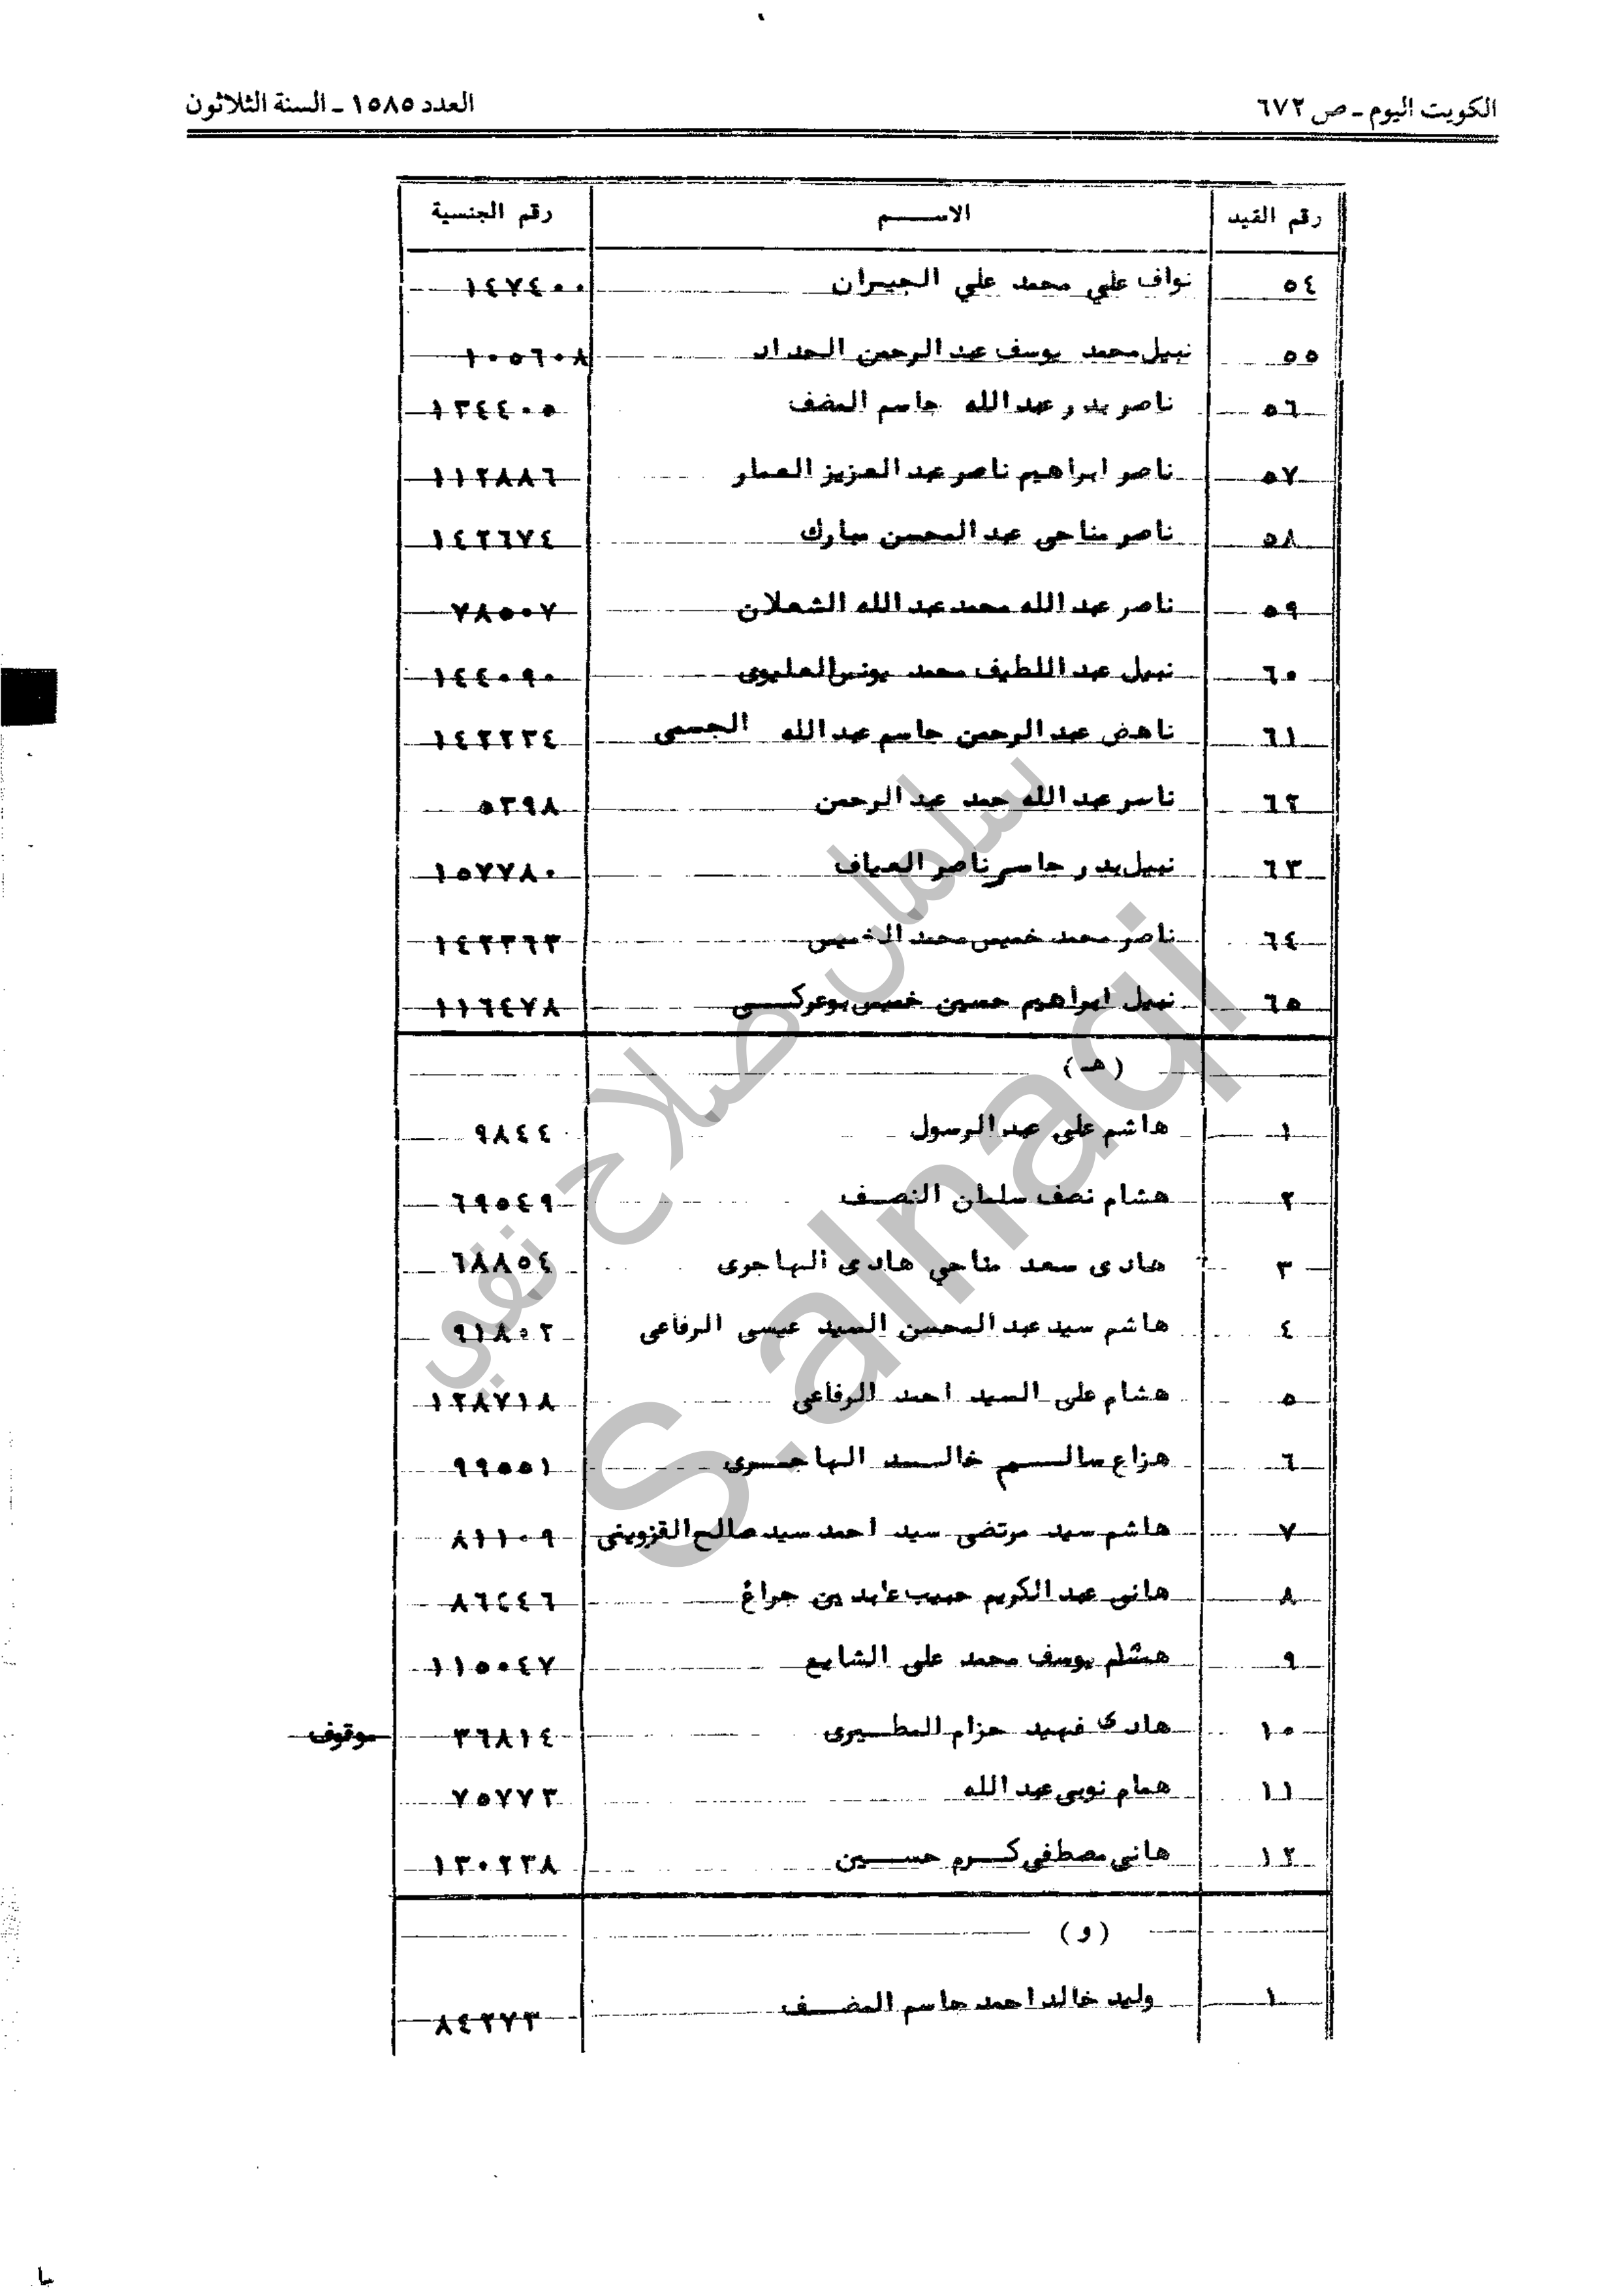 الكويت اليوم ـ ص ٦٧٢ العدد ١٥٨٥ ـ السنة الثلاثون
رقم القيد الاســـم رقم الجنسية
٥٤ نواف علي محمد علي الجيران ١٤٧٤٠٠
٥٥ نبيل محمد يوسف عبد الرحمن الحداد ١٠٥٦٠٨
٥٦ ناصر بدر عبد الله جاسم المضف ١٣٤٤٠٥
٥٧ ناصر ابراهيم ناصر عبد العزيز العمار ١١٢٨٨٦
٥٨ ناصر مناحى عبد المحسن مبارك ١٤٢٦٧٤
٥٩ ناصر عبد الله محمد عبد الله الشعلان ٧٨٥٠٧
٦٠ نبيل عبد اللطيف محمد يونس العليوى ١٤٤٠٩٠
٦١ ناهض عبد الرحمن جاسم عبد الله الجسمى ١٤٢٢٣٤
٦٢ ناسر عبد الله حمد عبد الرحمن ٥٣٩٨
٦٣ نبيل بدر جاسم ناصر العياف ١٥٧٧٨٠
٦٤ ناصر محمد خميس محمد الخميس ١٤٢٣٦٣
٦٥ نبيل ابراهيم حسين خميس بوعركــى ١١٦٤٧٨
(هـ)
١ هاشم على عبد الرسول ٩٨٤٤
٢ هشام نصف سلطان النصـف ٦٩٥٤٩
٣ هادى سعد مناحي هادى الهاجرى ٦٨٨٥٤
٤ هاشم سيد عبد المحسن السيد عيسى الرفاعى ٩١٨٠٢
٥ هشام على السيد احمد الرفاعى ١٢٨٧١٨
٦ هزاع سالـــم خالــد الهاجــرى ٩٩٥٥١
٧ هاشم سيد مرتضى سيد احمد سيد صالح القزوينى ٨١١٠٩
٨ هانى عبد الكريم حبيب عابدين جراغ ٨٦٤٤٦
٩ هشام يوسف محمد على الشايع ١١٥٠٤٧
١٠ هادى فهيد حزام المطــيرى ٣٦٨١٤ موقوف
١١ همام نوبى عبد الله ٧٥٧٧٣
١٢ هاني مصطفى كــرم حســين ١٣٠٢٣٨
(و)
١ وليد خالد احمد جاسم المضــف ٨٤٢٧٣
سلمان صلاح نقي
S.alnaqi